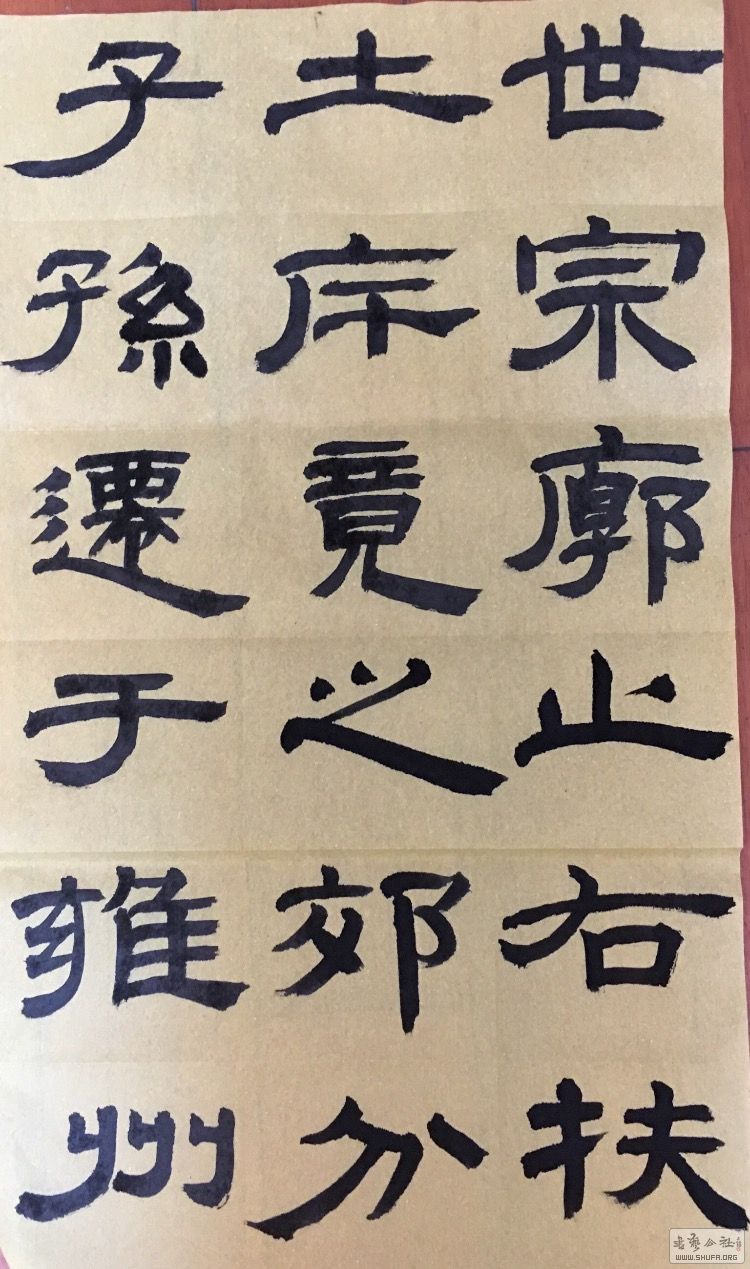 世宗廓止右扶
土斥竟之郊分
子孫遷于雍州
書藝公社
WWW.SHUFA.ORG